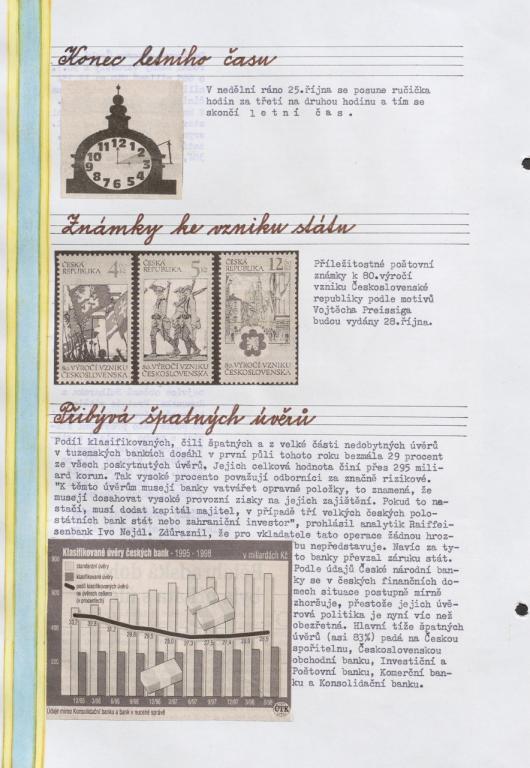 Konec letního času
V nedělní ráno 25.října se posune ručička
hodin za třetí na druhou hodinu a tím se
skončí letní čas.
Známky ke vzniku státu
ČESKÁ REPUBLIKA 4 Kč
80. VÝROČÍ VZNIKU ČESKOSLOVENSKA
ČESKÁ REPUBLIKA 5 Kč
80. VÝROČÍ VZNIKU ČESKOSLOVENSKA
ČESKÁ REPUBLIKA 12
80. VÝROČÍ VZNIKU ČESKOSLOVENSKA
Příležitostné poštovní
známky k 80.výročí
vzniku Československé
republiky podle motivů
Vojtěcha Preissiga
budou vydány 28.října.
Přibývá špatných úvěrů
Podíl klasifikovaných, čili špatných a z velké části nedobytných úvěrů
v tuzemských bankách dosáhl v první půli tohoto roku bezmála 29 procent
ze všech poskytnutých úvěrů, Jejich celková hodnota činí přes 295 mili-
ard korun. Tak vysoké procento považují odborníci za značně rizikové.
"K těmto úvěrům musejí banky vatvářet opravné položky, to znamená, že
musejí dosahovat vysoké provozní zisky na jejich zajištění. Pokud to na-
stačí, musí dodat kapitál majitel, v případě tří velkých českých polo-
státních bank stát nebo zahraniční investor", prohlásil analytik Raiffei-
senbank Ivo Nejdl. Zdůraznil, že pro vkladatele tato operace žádnou hroz-
bu nepředstavuje. Navíc za ty-
to banky převzal záruku stát.
Podle údajů České národní ban-
ky se v českých finančních do-
mech situace postupně mírně
zhoršuje, přestože jejich úvě-
rová politika je nyní víc než
obezřetná. Hlavní tíže špatných
úvěrů (asi 83%) padá na Českou
spořitelnu, Československou
obchodní banku, Investiční a
Poštovní banku, Komerční ban-
ku a Konsolidační banku.
Klasifikované úvěry českých bank - 1995 - 1998 v miliardách Kč
standardní úvěry
klasifikované úvěry
podíl klasifikovaných úvěrů
na úvěrech celkem
(v procentech)
12/95 3/96 6/96 9/96 12/96 3/97 6/97 9/97 12/97 3/98 6/98
Údaje mimo Konsolidační banku a bank v nucené správě
ČTK